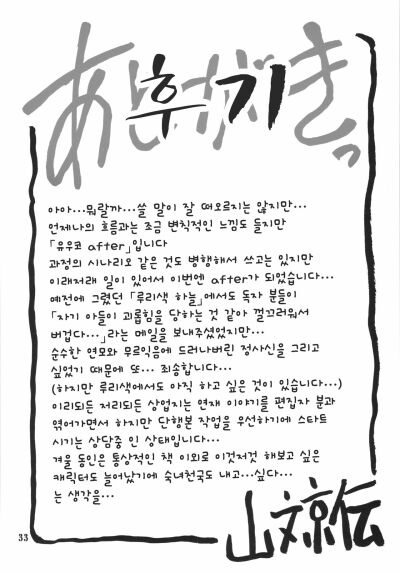 あとがきっ
후기
아아…뭐랄까…쓸 말이 잘 떠오르지는 않지만…
언제나의 흐름과는 조금 변칙적인 느낌도 들지만
「유우코 after」입니다
과정의 시나리오 같은 것도 병행해서 쓰고는 있지만
이래저래 일이 있어서 이번엔 after가 되었습니다…
예전에 그렸던 「루리색 하늘」에서도 독자 분들이
「자기 아들이 괴롭힘을 당하는 것 같아 껄끄러워서
버겁다…」라는 메일을 보내주셨었지만…
순수한 연모와 무르익음에 드러나버린 정사신을 그리고
싶었기 때문에 또… 죄송합니다…
(하지만 루리색에서도 아직 하고 싶은 것이 있습니다…)
이리되든 저리되든 상업지는 연재 이야기를 편집자 분과
엮어가면서 하지만 단행본 작업을 우선하기에 스타트
시키는 상담중 인 상태입니다…
겨울 동인은 통상적인 책 이외로 이것저것 해보고 싶은
캐릭터도 늘어났기에 숙녀천국도 내고…싶다…
는 생각을…
山文京伝
33